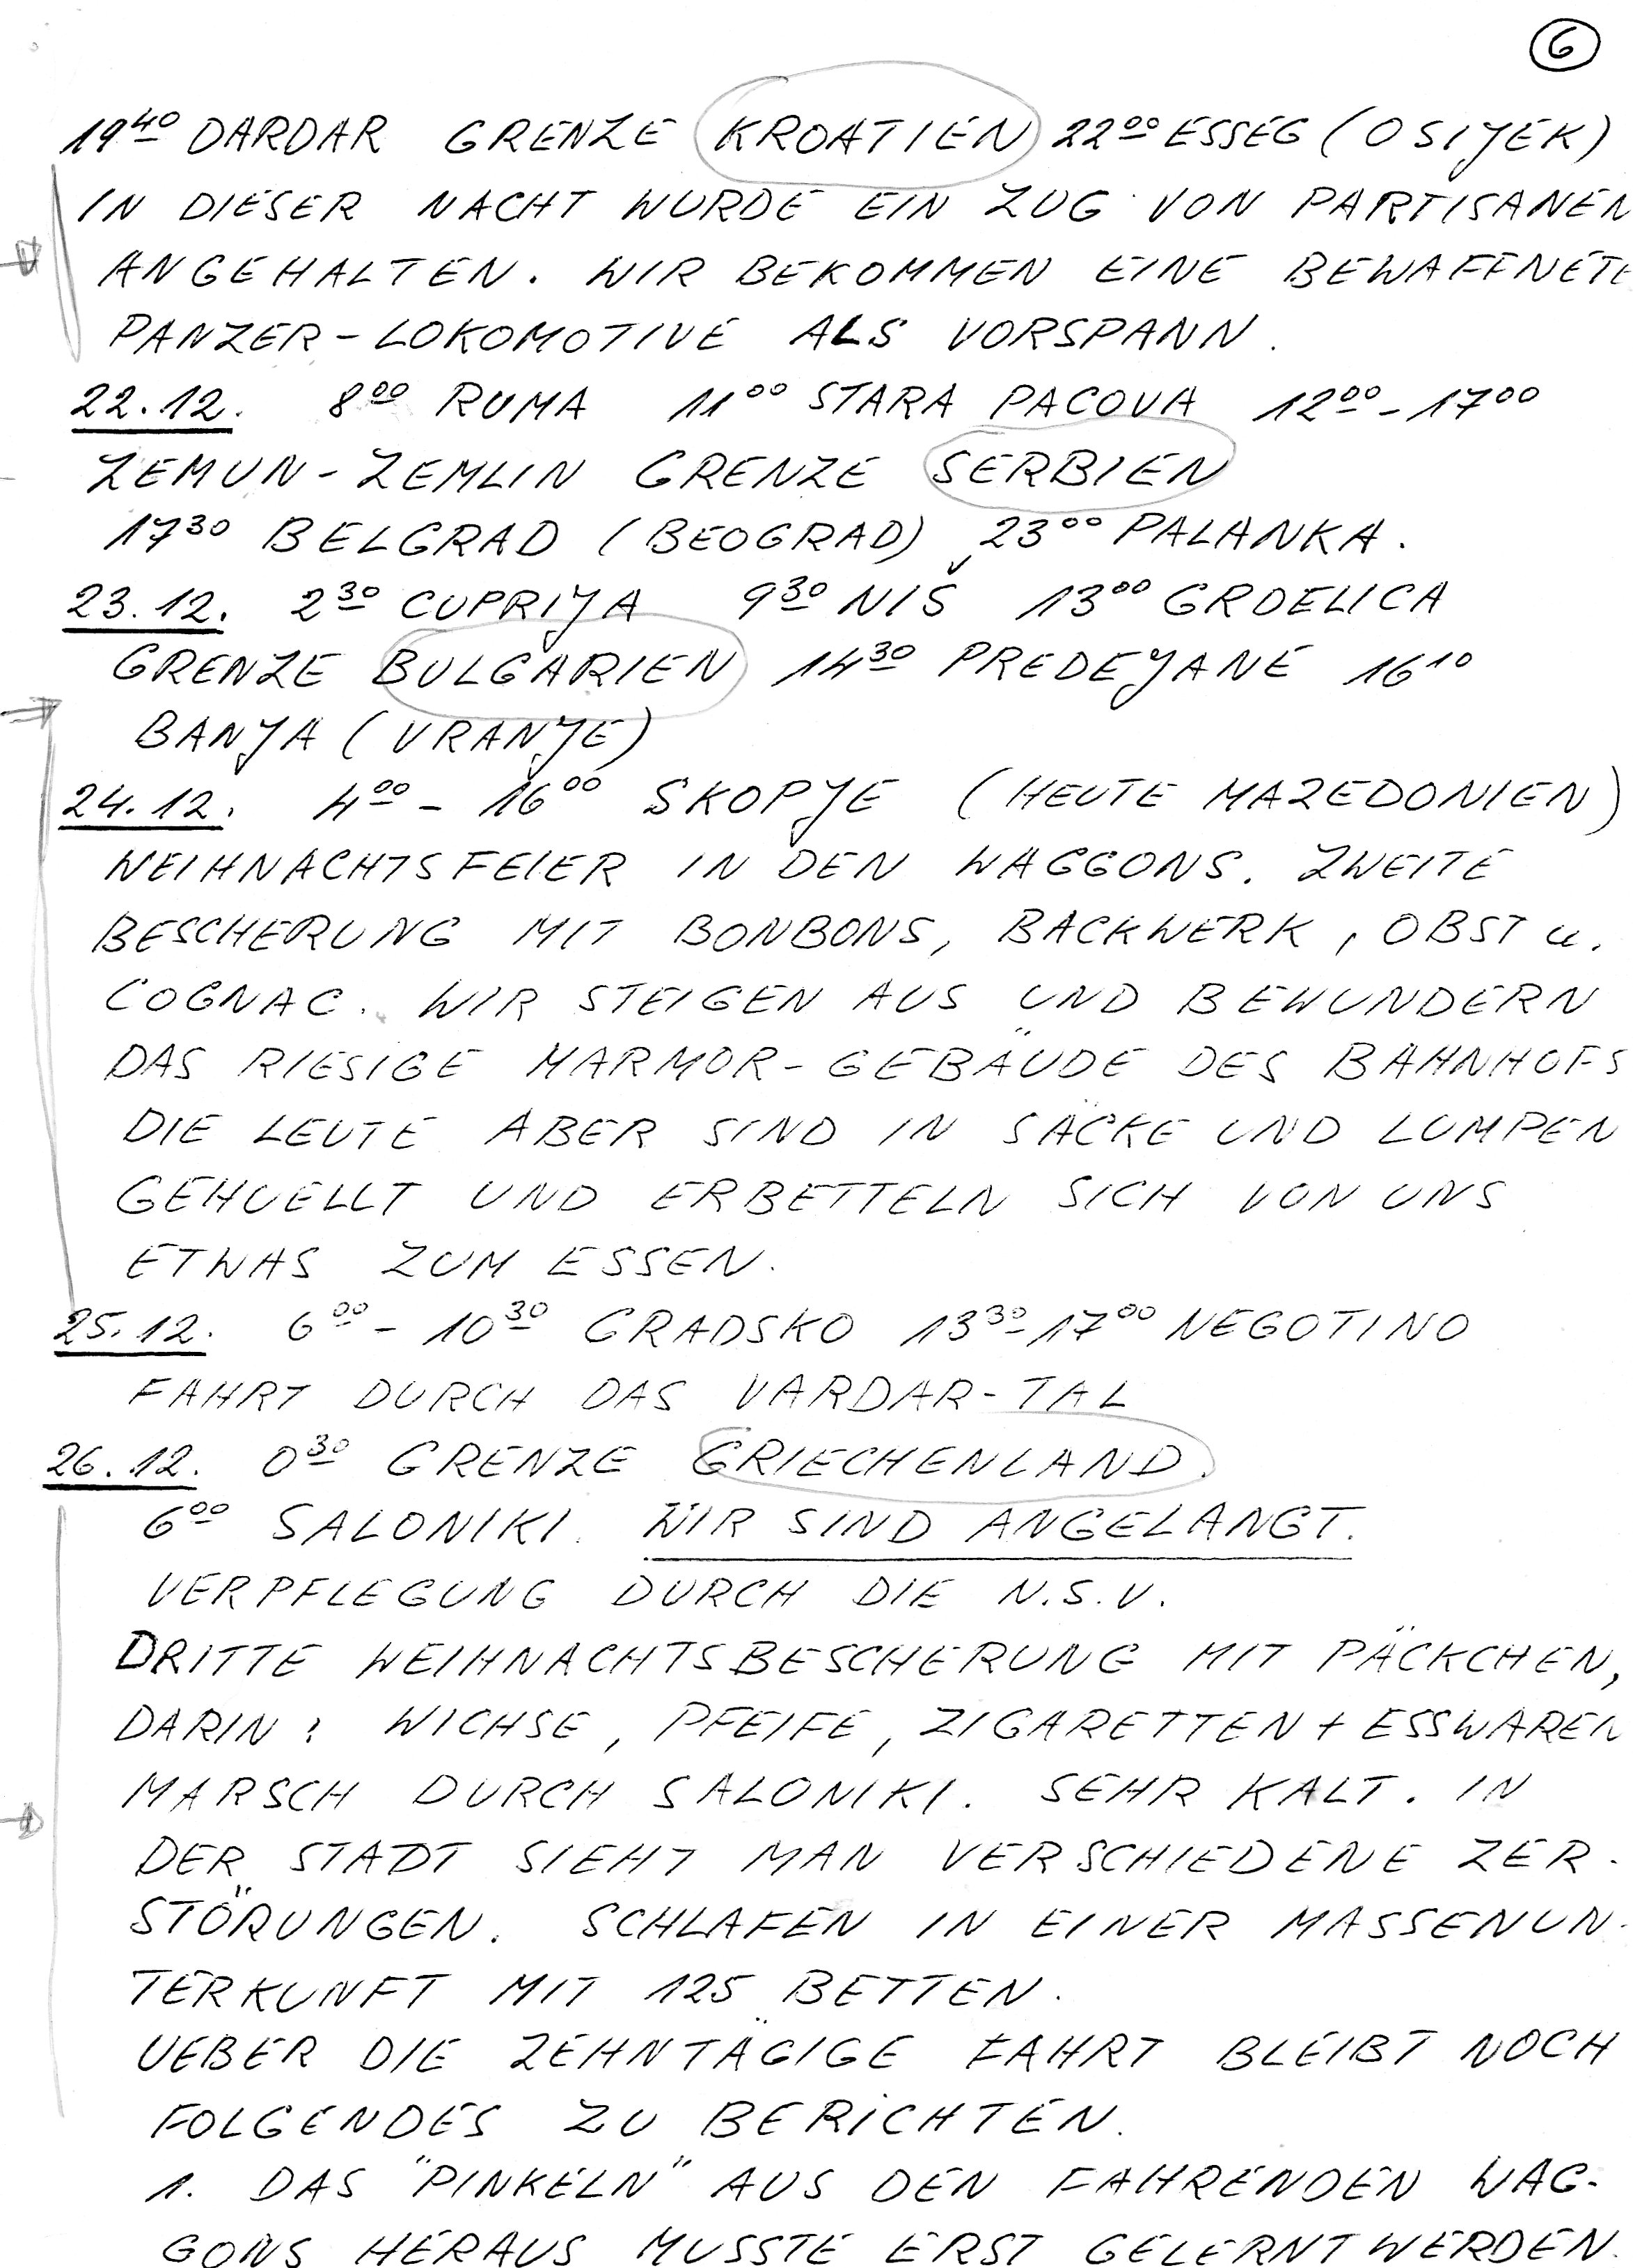 6
19⁴⁰ DARDAR GRENZE KROATIEN 22⁰⁰ ESSEG (OSIJEK)
IN DIESER NACHT WURDE EIN ZUG VON PARTISANEN
ANGEHALTEN. WIR BEKOMMEN EINE BEWAFFNETE
PANZER-LOKOMOTIVE ALS VORSPANN.
22.12. 8⁰⁰ RUMA 11⁰⁰ STARA PACOVA 12⁰⁰-17⁰⁰
ZEMUN-ZEMLIN GRENZE SERBIEN
17³⁰ BELGRAD (BEOGRAD) 23⁰⁰ PALANKA.
23.12. 2³⁰ CUPRIJA 9³⁰ NIŠ 13⁰⁰ GRDELICA
GRENZE BULGARIEN 14³⁰ PREDEJANE 16¹⁰
BANJA (VRANJE)
24.12. 4⁰⁰ - 16⁰⁰ SKOPJE (HEUTE MAZEDONIEN)
WEIHNACHTSFEIER IN DEN WAGGONS. ZWEITE
BESCHERUNG MIT BONBONS, BACKWERK, OBST u.
COGNAC. WIR STEIGEN AUS UND BEWUNDERN
DAS RIESIGE MARMOR-GEBÄUDE DES BAHNHOFS
DIE LEUTE ABER SIND IN SÄCKE UND LUMPEN
GEHUELLT UND ERBETTELN SICH VON UNS
ETWAS ZUM ESSEN.
25.12. 6⁰⁰ - 10³⁰ GRADSKO 13³⁰-17⁰⁰ NEGOTINO
FAHRT DURCH DAS VARDAR-TAL
26.12. 0³⁰ GRENZE GRIECHENLAND.
6⁰⁰ SALONIKI. WIR SIND ANGELANGT.
VERPFLEGUNG DURCH DIE N.S.V.
DRITTE WEIHNACHTSBESCHERUNG MIT PÄCKCHEN,
DARIN: WICHSE, PFEIFE, ZIGARETTEN + ESSWAREN
MARSCH DURCH SALONIKI. SEHR KALT. IN
DER STADT SIEHT MAN VERSCHIEDENE ZER-
STÖRUNGEN. SCHLAFEN IN EINER MASSENUN-
TERKUNFT MIT 125 BETTEN.
UEBER DIE ZEHNTÄGIGE FAHRT BLEIBT NOCH
FOLGENDES ZU BERICHTEN.
1. DAS "PINKELN" AUS DEN FAHRENDEN WAG-
GONS HERAUS MUSSTE ERST GELERNT WERDEN.